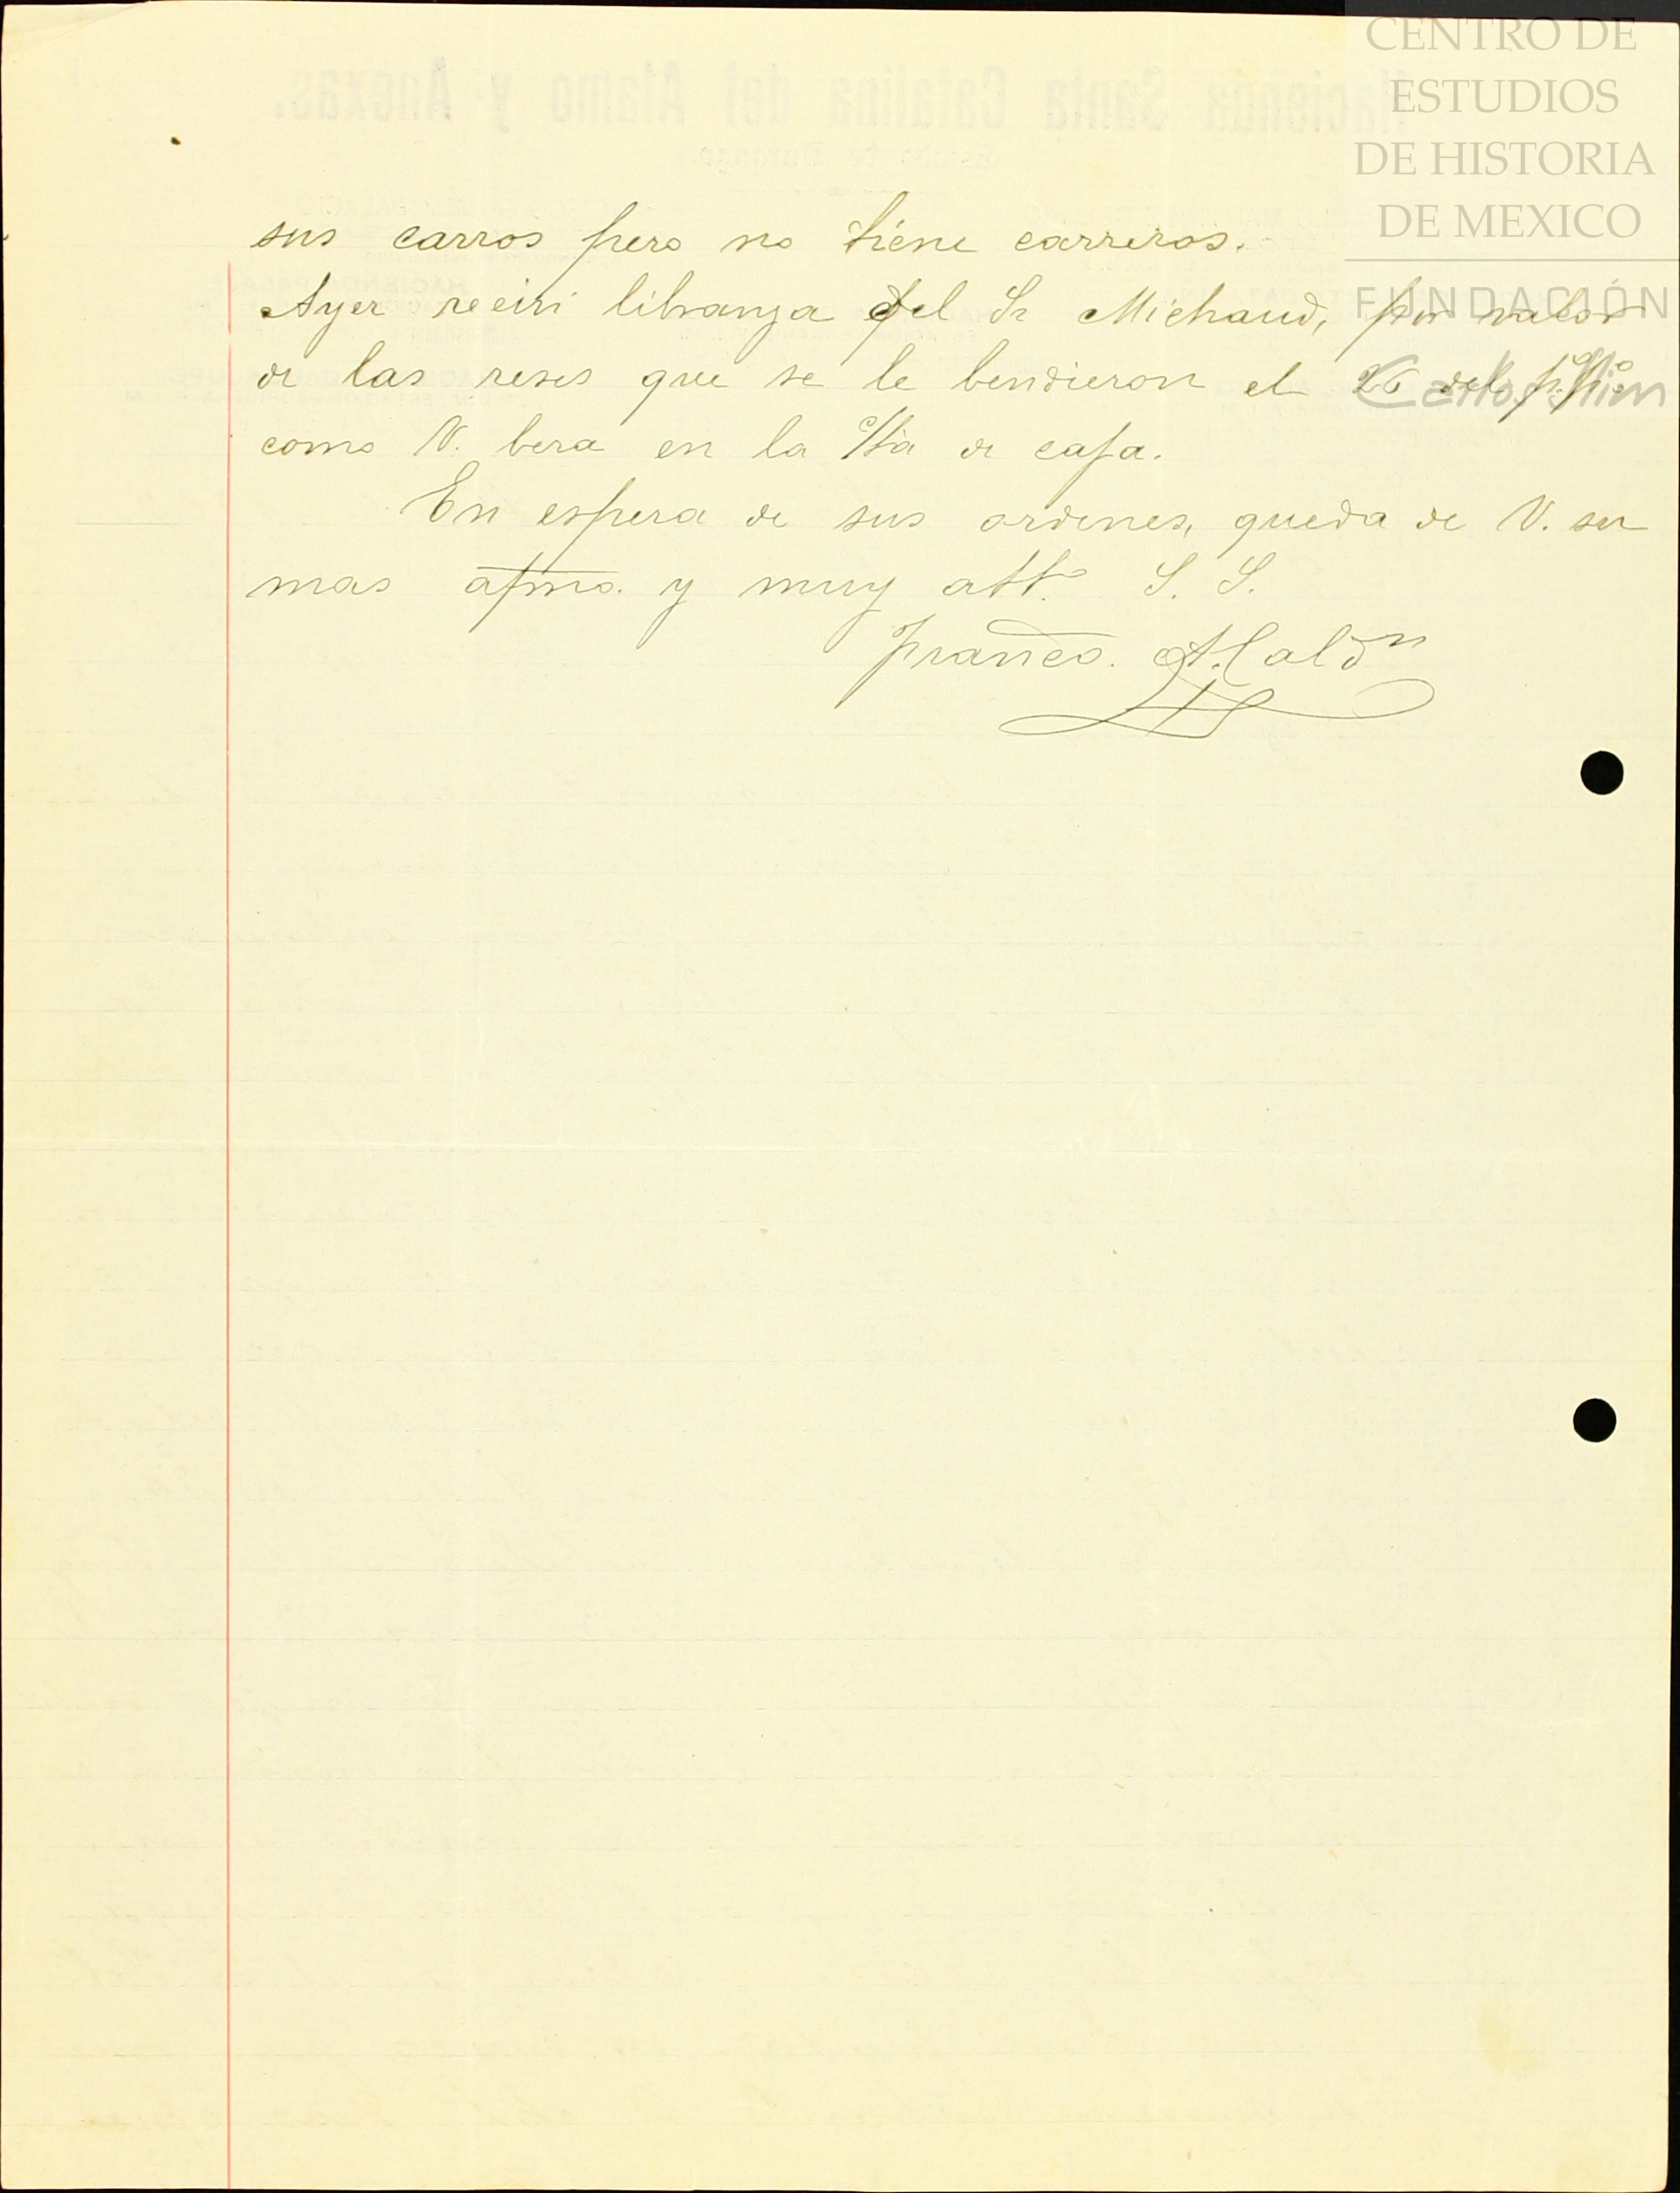 CENTRO DE
ESTUDIOS
DE HISTORIA
DE MEXICO
FUNDACIÓN
Carlos Slim
sus carros pero no tiene carreros.
Ayer reciví libranza del Sr Michaud, por valor
de las reses que se le bendieron el 26 del
como V. bera en la de caja.
En espera de sus ordenes, queda de V. su
mas afmo. y muy att. S. S.
Franco.